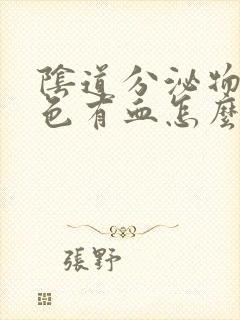 陰道分泌物
色有血怎麼
張野